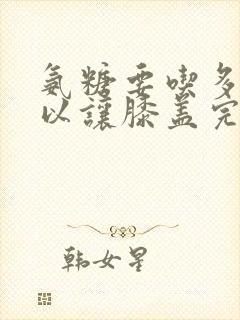 氨糖要喫多
以讓膝蓋完
韩女星